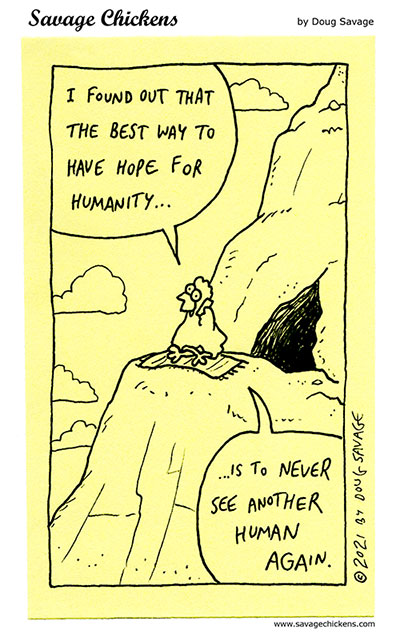 Savage Chickens
by Doug Savage
I FOUND OUT THAT
THE BEST WAY TO
HAVE HOPE FOR
HUMANITY...
...IS TO NEVER
SEE ANOTHER
HUMAN
AGAIN.
©2021 BY DOUG SAVAGE
www.savagechickens.com